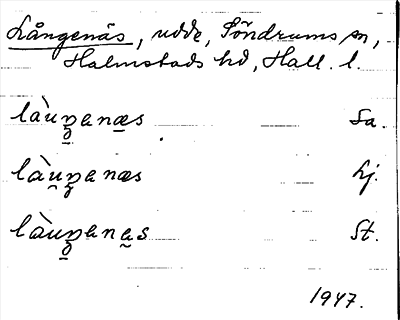 Långenäs, udde, Söndrums sn,
Halmstads hd, Hall. l.
là̀uŋ̱enæ̱s Sa.
làu̯ŋenæs Lj.
làuŋ̱ena̱s St.
1947.